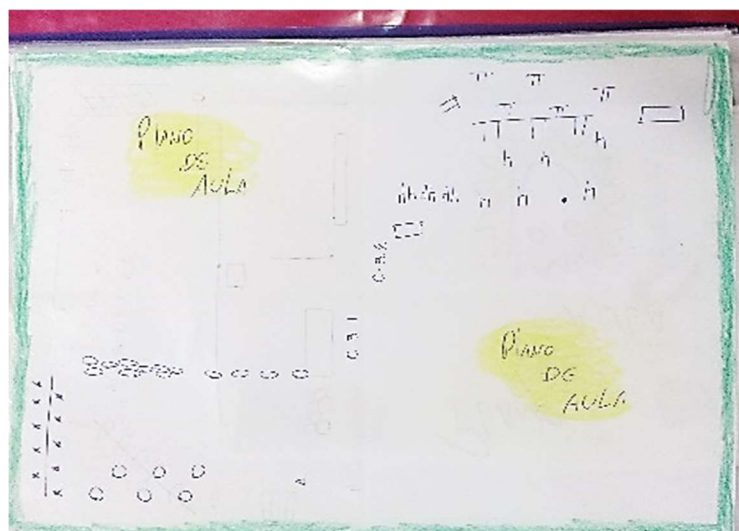 PLANO
DE
AULA
PLANO
DE
AULA